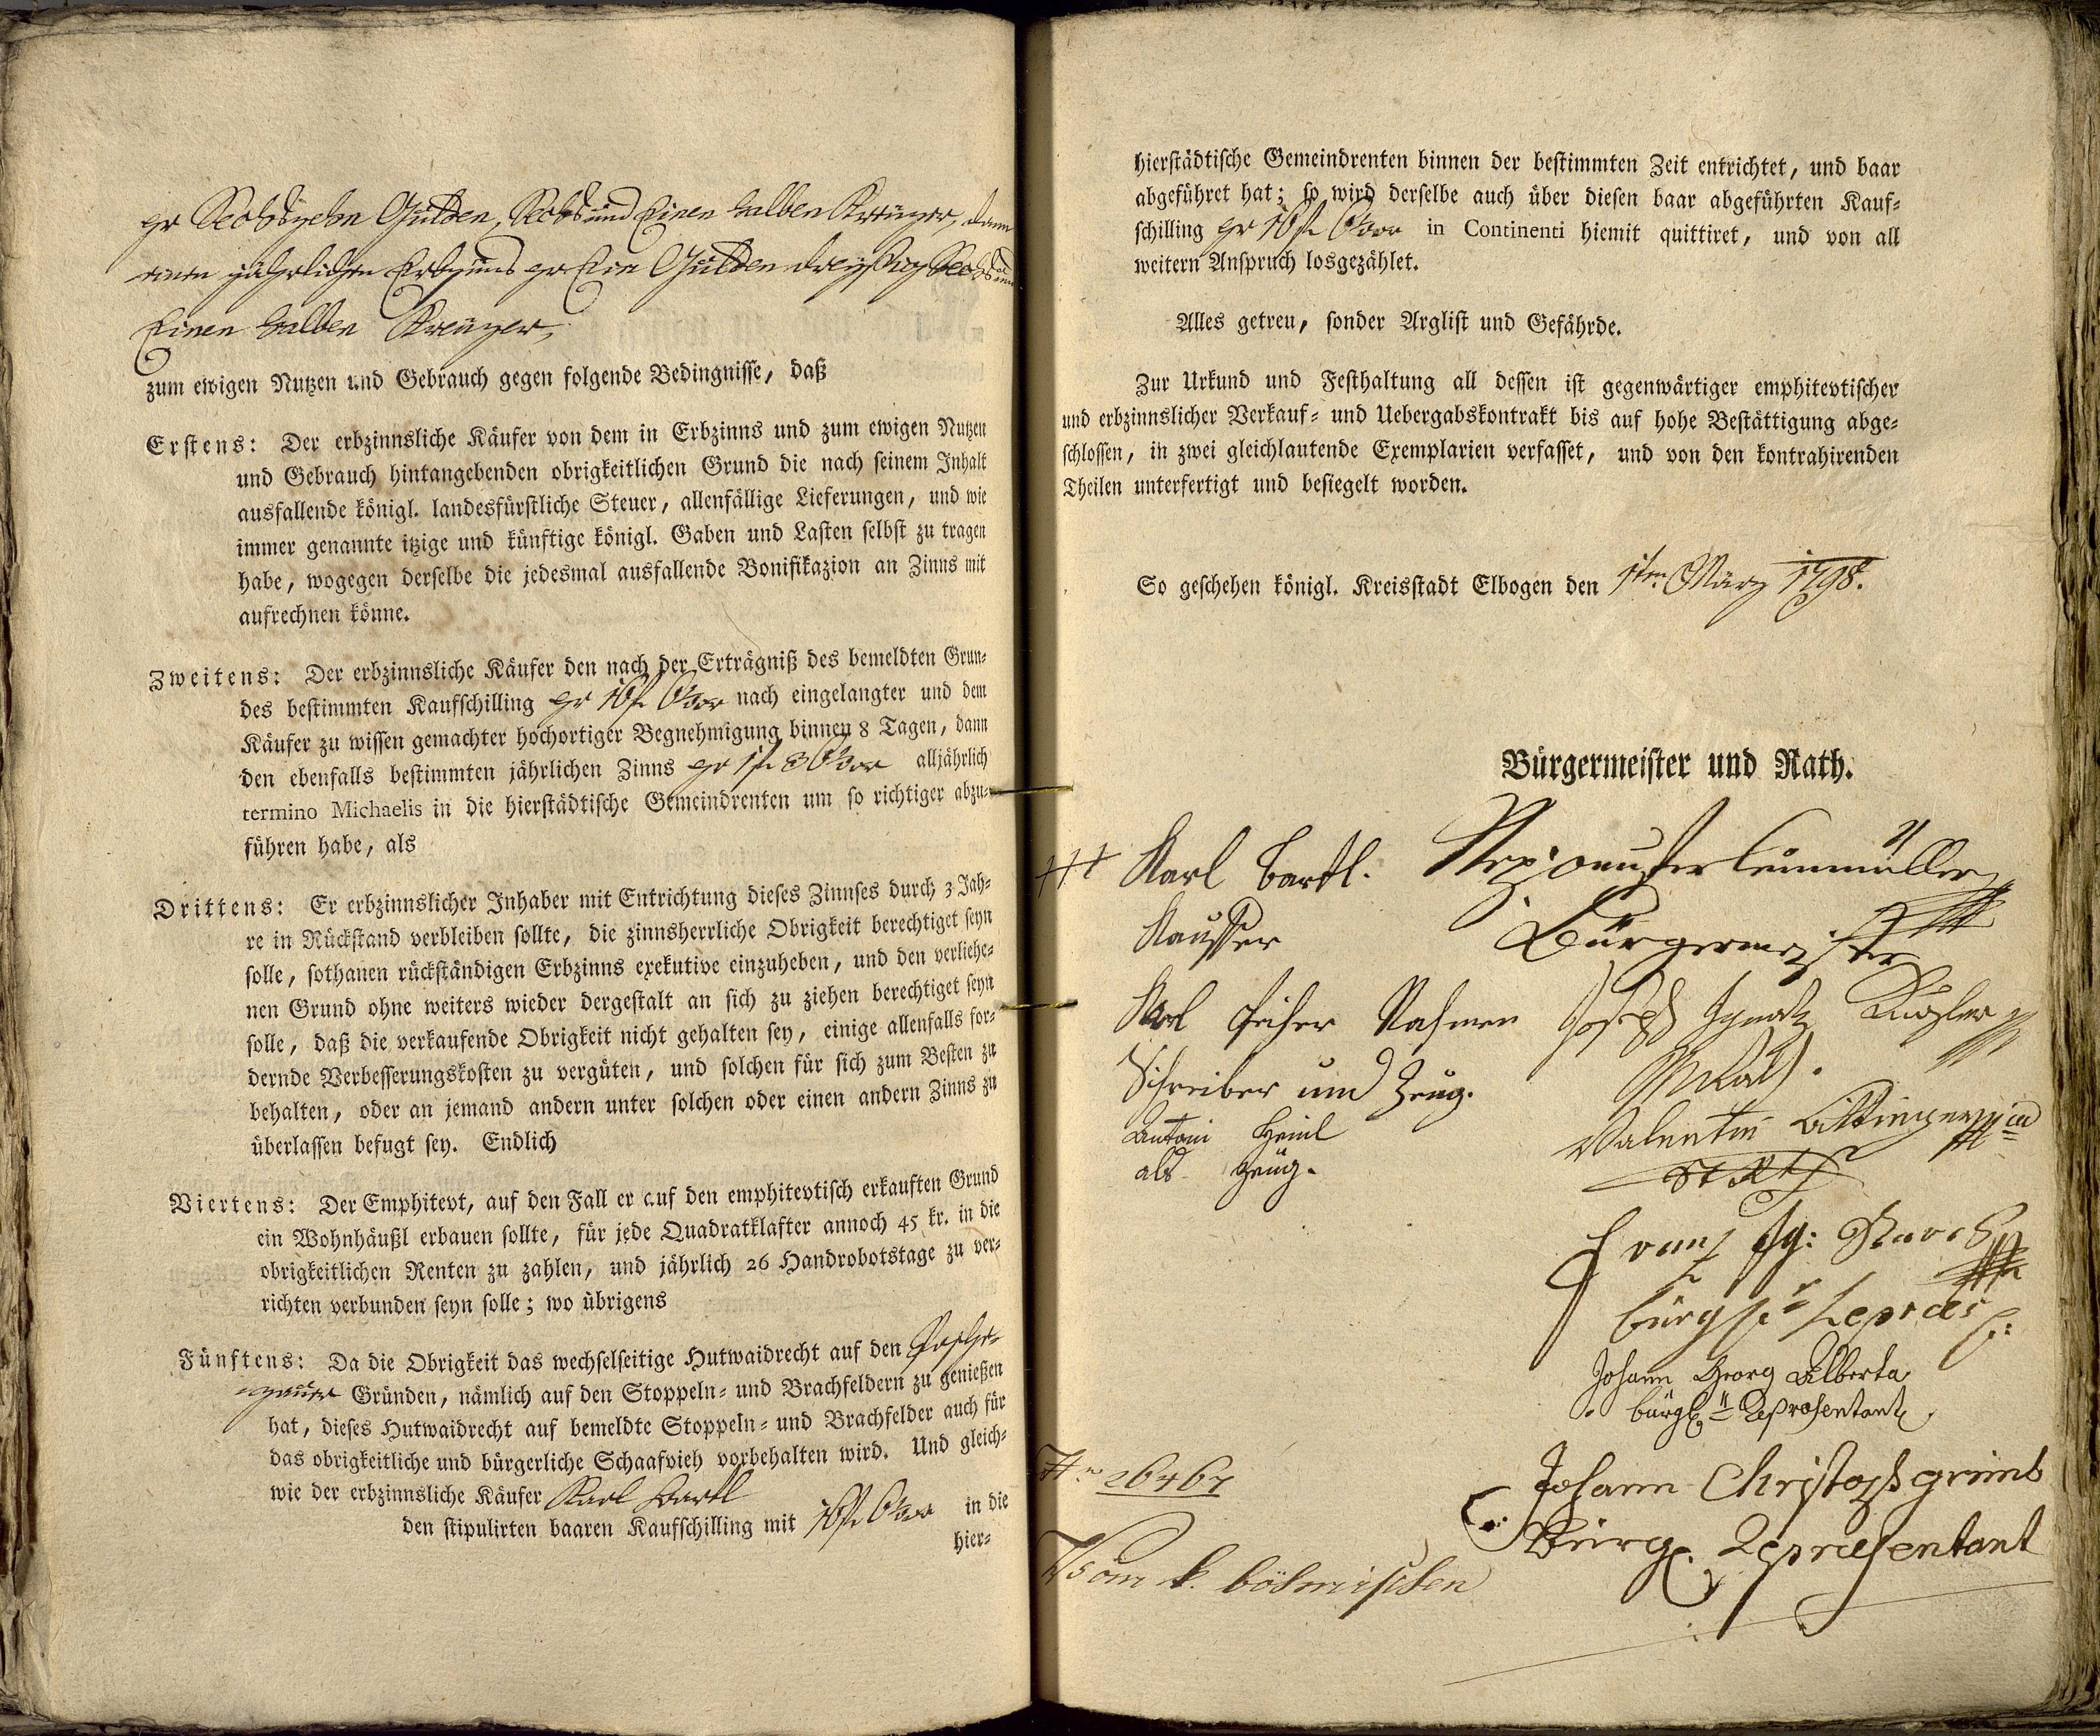 pr Sechszehn Gulden, Sechs und Einen halben Kreuzer, dann
einen jährlichen Erbzinns pr Ein Gulden dreyßig Sechs und
Einen halben Kreuzer,
zum ewigen Nutzen und Gebrauch gegen folgende Bedingnisse, daß
Erstens: Der erbzinnsliche Käufer von dem in Erbzinns und zum ewigen Nutzen
und Gebrauch hintangebenden obrigkeitlichen Grund die nach seinem Inhalt
ausfallende königl. landesfürstliche Steuer, allenfällige Lieferungen, und wie
immer genannte itzige und künftige königl. Gaben und Lasten selbst zu tragen
habe, wogegen derselbe die jedesmal ausfallende Bonifikazion an Zinns mit
aufrechnen könne.
Zweitens: Der erbzinnsliche Käufer den nach der Erträgniß des bemeldten Grun-
des bestimmten Kaufschilling pr 16 f. 6½ xr nach eingelangter und dem
Käufer zu wissen gemachter hochortiger Begnehmigung binnen 8 Tagen, dann
den ebenfalls bestimmten jährlichen Zinns pr 1 f. 36½ xr alljährlich
termino Michaelis in die hierstädtische Gemeindrenten um so richtiger abzu-
führen habe, als
Drittens: Er erbzinnslicher Inhaber mit Entrichtung dieses Zinnses durch 3 Jah-
re in Rückstand verbleiben sollte, die zinnsherrliche Obrigkeit berechtiget seyn
solle, sothanen rückständigen Erbzinns exekutive einzuheben, und den verliehe-
nen Grund ohne weiters wieder dergestalt an sich zu ziehen berechtiget seyn
solle, daß die verkaufende Obrigkeit nicht gehalten sey, einige allenfalls for-
dernde Verbesserungskosten zu vergüten, und solchen für sich zum Besten zu
behalten, oder an jemand andern unter solchen oder einen andern Zinns zu
überlassen befugt sey. Endlich
Viertens: Der Emphitevt, auf den Fall er auf den emphitevtisch erkauften Grund
ein Wohnhäußl erbauen sollte, für jede Quadratklafter annoch 45 kr. in die
obrigkeitlichen Renten zu zahlen, und jährlich 26 Handrobotstage zu ver-
richten verbunden seyn solle; wo übrigens
Fünftens: Da die Obrigkeit das wechselseitige Hutwaidrecht auf den
Gründen, nämlich auf den Stoppeln- und Brachfeldern zu genießen
hat, dieses Hutwaidrecht auf bemeldte Stoppeln- und Brachfelder auch für
das obrigkeitliche und bürgerliche Schaafvieh vorbehalten wird. Und gleich-
wie der erbzinnsliche Käufer Karl Bartl
den stipulirten baaren Kaufschilling mit 16 f. 6½ xr in die
hier-
hierstädtische Gemeindrenten binnen der bestimmten Zeit entrichtet, und baar
abgeführet hat; so wird derselbe auch über diesen baar abgeführten Kauf-
schilling pr 16 f. 6½ xr in Continenti hiemit quittiret, und von all
weitern Anspruch losgezählet.
Alles getreu, sonder Arglist und Gefährde.
Zur Urkund und Festhaltung all dessen ist gegenwärtiger emphitevtischer
und erbzinnslicher Verkauf- und Uebergabskontrakt bis auf hohe Bestättigung abge-
schlossen, in zwei gleichlautende Exemplarien verfasset, und von den kontrahirenden
Theilen unterfertigt und besiegelt worden.
So geschehen königl. Kreisstadt Elbogen den 1ten März 1798.
Bürgermeister und Rath.
+++ Karl Bartl.
Kauffer
Karl Nahmen
Schreiber und Zeug.
Antoni Heinl
als Zeug.
Bürgermeister
Joseph Ignatz
Rath.
Valentin
Franz Ig:
bürgl. Repraes:
Johann Georg Alberta
bürgl. Repræsentant
Johann Christoph grimb
Bürgl. Repræsentant
26467
Vom k. böhmischen